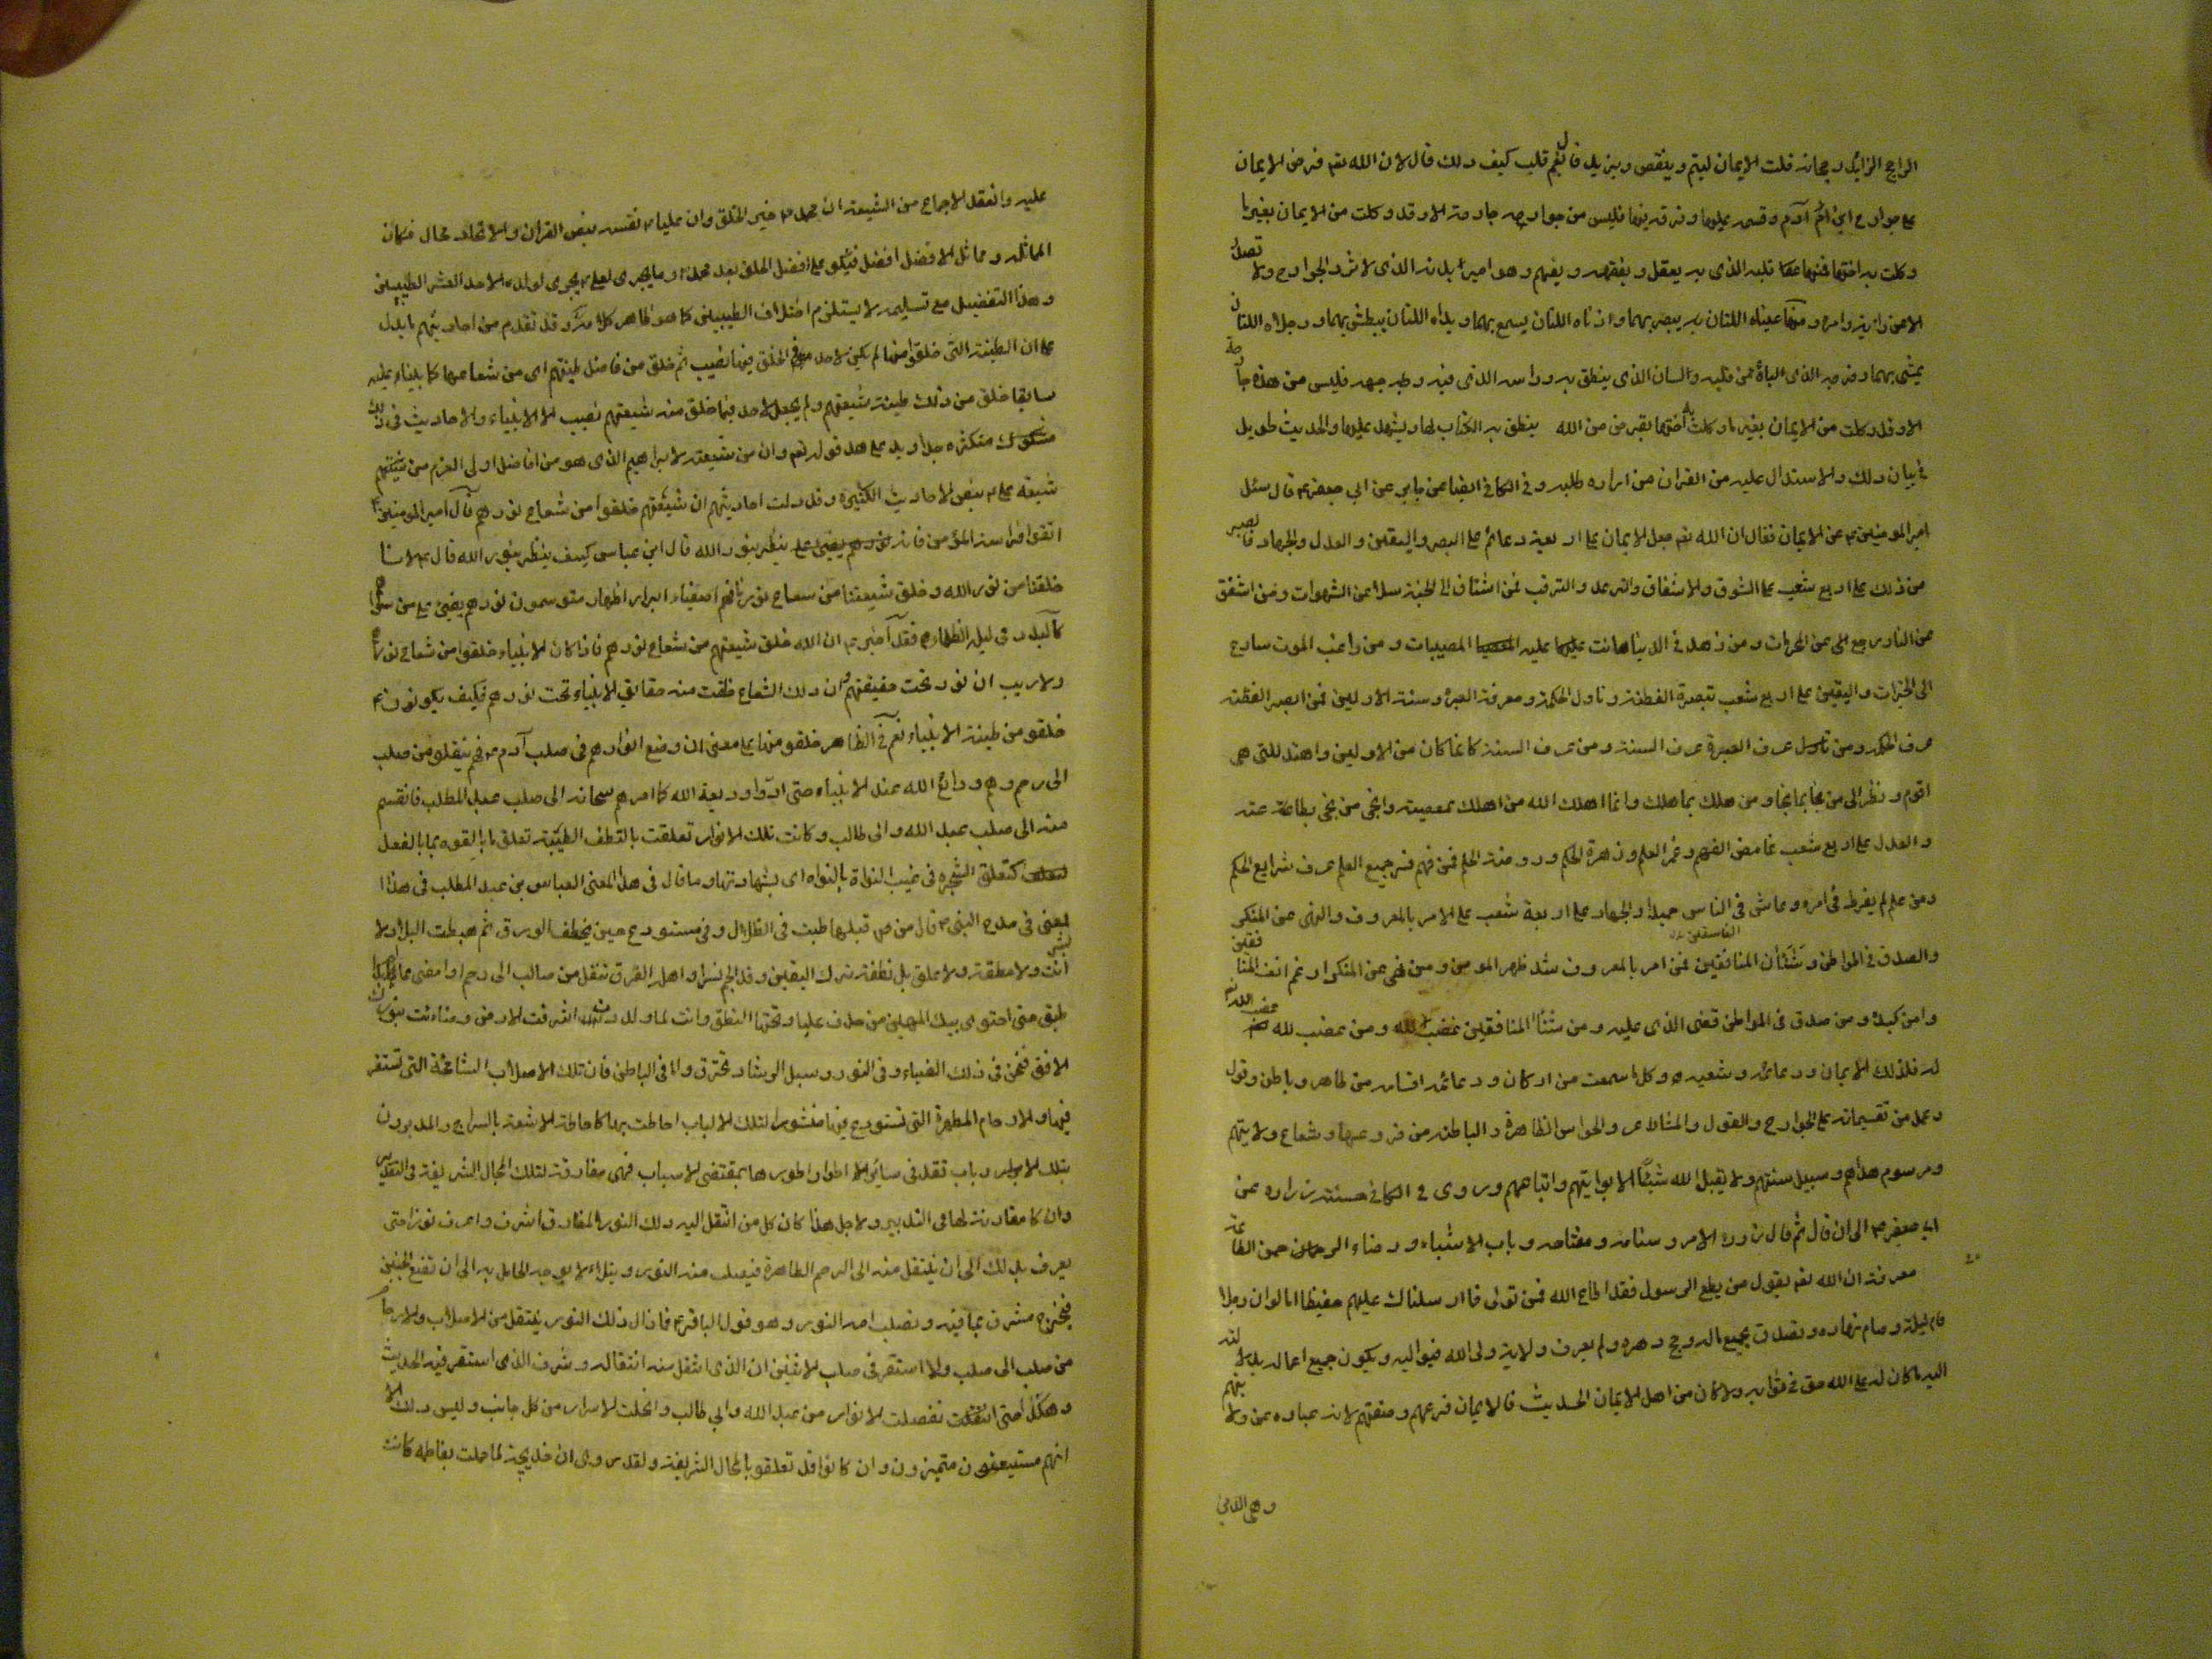 الراجح الزائد رجحانه قلت الايمان ليتم وينقص ويزيد قال نعم قلت كيف ذلك قال لان الله تع فرض الايمان
على جوارح ابن آدم وقسمه عليها وفرقه فيها فليس من جوارحه جارحة الا وقد وكلت من الايمان بغير ما
وكلت به اختها فمنها قلبه الذي به يعقل ويفقه ويفهم وهو امير بدنه الذي لا ترد الجوارح ولا تصدر
الا عن رايه وامره ومنها عيناه اللتان يبصر بهما واذناه اللتان يسمع بهما ويداه اللتان يبطش بهما ورجلاه اللتان
يمشي بهما وفرجه الذي الباه من قلبه ولسانه الذي ينطق به وراسه الذي فيه وجهه فليس من هذه جارحة
الا وقد وكلت من الايمان بغير ما وكلت به اختها بفرض من الله ينطق به الكتاب لها ويشهد عليها والحديث طويل
في بيان ذلك والاستدلال عليه من القران من اراده طلبه وفي الكافي ايضا عن جابر عن ابي جعفر ع قال سئل
امير المومنين ع عن الايمان فقال ان الله تع جعل الايمان على اربعة دعائم على الصبر واليقين والعدل والجهاد فالصبر
من ذلك على اربع شعب على الشوق والاشفاق والزهد والترقب فمن اشتاق الى الجنة سلا عن الشهوات ومن اشفق
من النار رجع عن المحرمات ومن زهد في الدنيا هانت عليه المصيبات ومن راقب الموت سارع
الى الخيرات واليقين على اربع شعب تبصرة الفطنة وتاول الحكمة ومعرفة العبرة وسنة الاولين فمن ابصر الفطنة
عرف الحكمة ومن تاول عرف العبرة ومن عرف السنة كانما كان من الاولين واهتد للتي هي
اقوم ونظر الى من نجا بما نجا ومن هلك بما هلك وانما اهلك الله من اهلك بمعصيته وانجى من نجى بطاعته
والعدل على اربع شعب غامض الفهم وغمر العلم وزهرة الحكم وروضة الحلم فمن فهم فسر جميع العلم عرف شرايع الحكم
ومن حلم لم يفرط في امره وعاش في الناس حميدا والجهاد على اربعة شعب على الامر بالمعروف والنهي عن المنكر
والصدق في المواطن وشنآن المنافقين فمن امر بالمعروف شد ظهر المومن ومن نهى عن المنكر ارغم انف المنافقين
وامن كيده ومن صدق في المواطن قضى الذي عليه ومن شنأ المنافقين غضب لله ومن غضب لله غضب الله تع
له فذلك الايمان ودعائمه وشعبه وكل ما سمعت من اركان ودعائم اقسامه من ظاهر وباطن وقول
وعمل من تقسيماته على الجوارح والعقول والمشاعر والحواس الظاهرة والباطنة من فروعها وشعاع ولايتهم
ورسوم هداهم وسبيل سنتهم ولا يقبل الله شيئا الا بولايتهم واتباعهم وروى في الكافي حسنة زرارة عن
ابي جعفر ع الى ان قال ثم قال ذروة الامر وسنامه ومفتاحه وباب الاشياء ورضاء الرحمن الطاعة
معرفته ان الله تع يقول من يطع الرسول فقد اطاع الله فمن تولى فما ارسلناك عليهم حفيظا اما لو ان رجلا
قام ليله وصام نهاره وتصدق بجميع ماله وحج دهره ولم يعرف ولاية ولي الله فيواليه ويكون جميع اعماله بدلالته
اليه ما كان له على الله حق في ثوابه ولا كان من اهل الايمان الحديث فالايمان فرعهم وصفتهم لانه عباره عن ولايتهم
وهي الداعي
عليه وانعقد الاجماع من الشيعة ان محمد ص خير الخلق وان عليا ع نفسه بنص القران والاتحاد محال فكان
المماثلة ومماثل الافضل افضل فيكون على افضل الخلق بعد محمد ص وما يجري لعلي ع يجري لولده الاحد العشر الطيبين
وهذا التفضيل مع تسليمه لا يستلزم اختلاف الطينتين كما هو ظاهر كلامه وقد تقدم من احاديثهم ما يدل
على ان الطينة التي خلقوا منها لم يكن لاحد من الخلق فيها نصيب ثم خلق من فاضل طينتهم اي من شعاعها كما بيناه عليه
سابقا خلق من ذلك طينة شيعتهم ولم يجعل لاحد فيما خلق منه شيعتهم نصيب الا الانبياء والاحاديث في ذلك
متكثره جدا ويدل على هذا قوله تع وان من شيعته لابراهيم الذي هو من افاضل اولي العزم من شيعتهم
شيعة علي ع بنص الاحاديث الكثيرة وقد دلت احاديثهم ان شيعتهم خلقوا من شعاع نورهم قال امير المومنين ع
اتقوا فراسة المؤمن فانه ينظر بنور الله قال ابن عباس كيف ينظر بنور الله قال ع لانا
خلقنا من نور الله وخلق شيعتنا من شعاع نورنا فهم اصفياء ابرار اطهار متوسمون نورهم يضئ على من سواهم
كالبدر في ليلة الظلماء فقد اخبر ع ان الله خلق شيعتهم من شعاع نورهم فاذا كان الانبياء خلقوا من شعاع نورهم
ولا ريب ان نور تحت حقيقتهم وان ذلك الشعاع خلقت منه حقائق الانبياء تحت نورهم فكيف يكونون ع
خلقو من طينة الانبياء نعم في الظاهر خلقو منها على معنى ان وضع انوارهم في صلب آدم ع فهم ينقلو من صلب
الى رحم وهم ودائع الله عند الانبياء حتى ادّوا وديعة الله كما امرهم سبحانه الى صلب عبد المطلب فانقسم
منه الى صلب عبد الله وابي طالب وكانت تلك الانوار تعلقت بالنطف الطيبة تعلق ما بالقوه بما بالفعل
كتعلق الشجره في غيب النواة بالنواه اي بشهادتها وما قال في هذا المعنى العباس بن عبد المطلب في هذا
المعنى في مدح النبي ص قال من قبلها طبت في الظلال وفي مستودع حين يخصف الورق ثم هبطت البلاد لا بشر
انت ولا مضغة ولا علق بل نطفة تركب السفين وقد الجم نسرا واهله الغرق تنقل من صالب الى رحم اذا مضى عالم بدا
طبق حتى احتوى بيتك المهيمن من خندف عليا وتحتها النطق وانت لما ولدت اشرقت الارض وضاءت بنورك
الافق فنحن في ذلك الضياء وفي النور وسبل الرشاد نخترق واما في الباطن فان تلك الاصلاب الشامخة التي تستقر
فيها والارحام المطهرة التي تستودع فيها احاطت بها كاحاطة الاشعة بالسراج والمدبرون
لتلك الانوار في سائر الاطوار اطورها بمقتضى الاسباب فهي مفارقة لتلك المحال الشريفة في التقدير
وان كا مقارنة لها في التدبير ولاجل هذا كان كل من انتقل اليه ذلك النور المفارق اشرف واعرف نورا حتى
يعرف بذلك الى ان ينتقل منه الى الرحم الطاهرة فيسلب منه النور ويتلألأ وجه الحامل به الى ان تضع الجنين
فيخرج مشرق بما فيه ويسلب امه النور وهو قول الباقر ع فما زال ذلك النور ينتقل من الاصلاب والارحام
من صلب الى صلب ولا استقر في صلب الا تبين ان الذي انتقل منه انتقاله وشرف الذي استقر فيه الحديث
وهكذا حتى انتقلت تفصلت الانوار من عبد الله وابي طالب وانجلت الاسرار من كل جانب وليس ذلك الا
انهم مستيعنون متميزون وان كانوا قد تعلقو بالمحال الشريفة ولقد روى ان خديجة لما حملت بفاطمة كانت